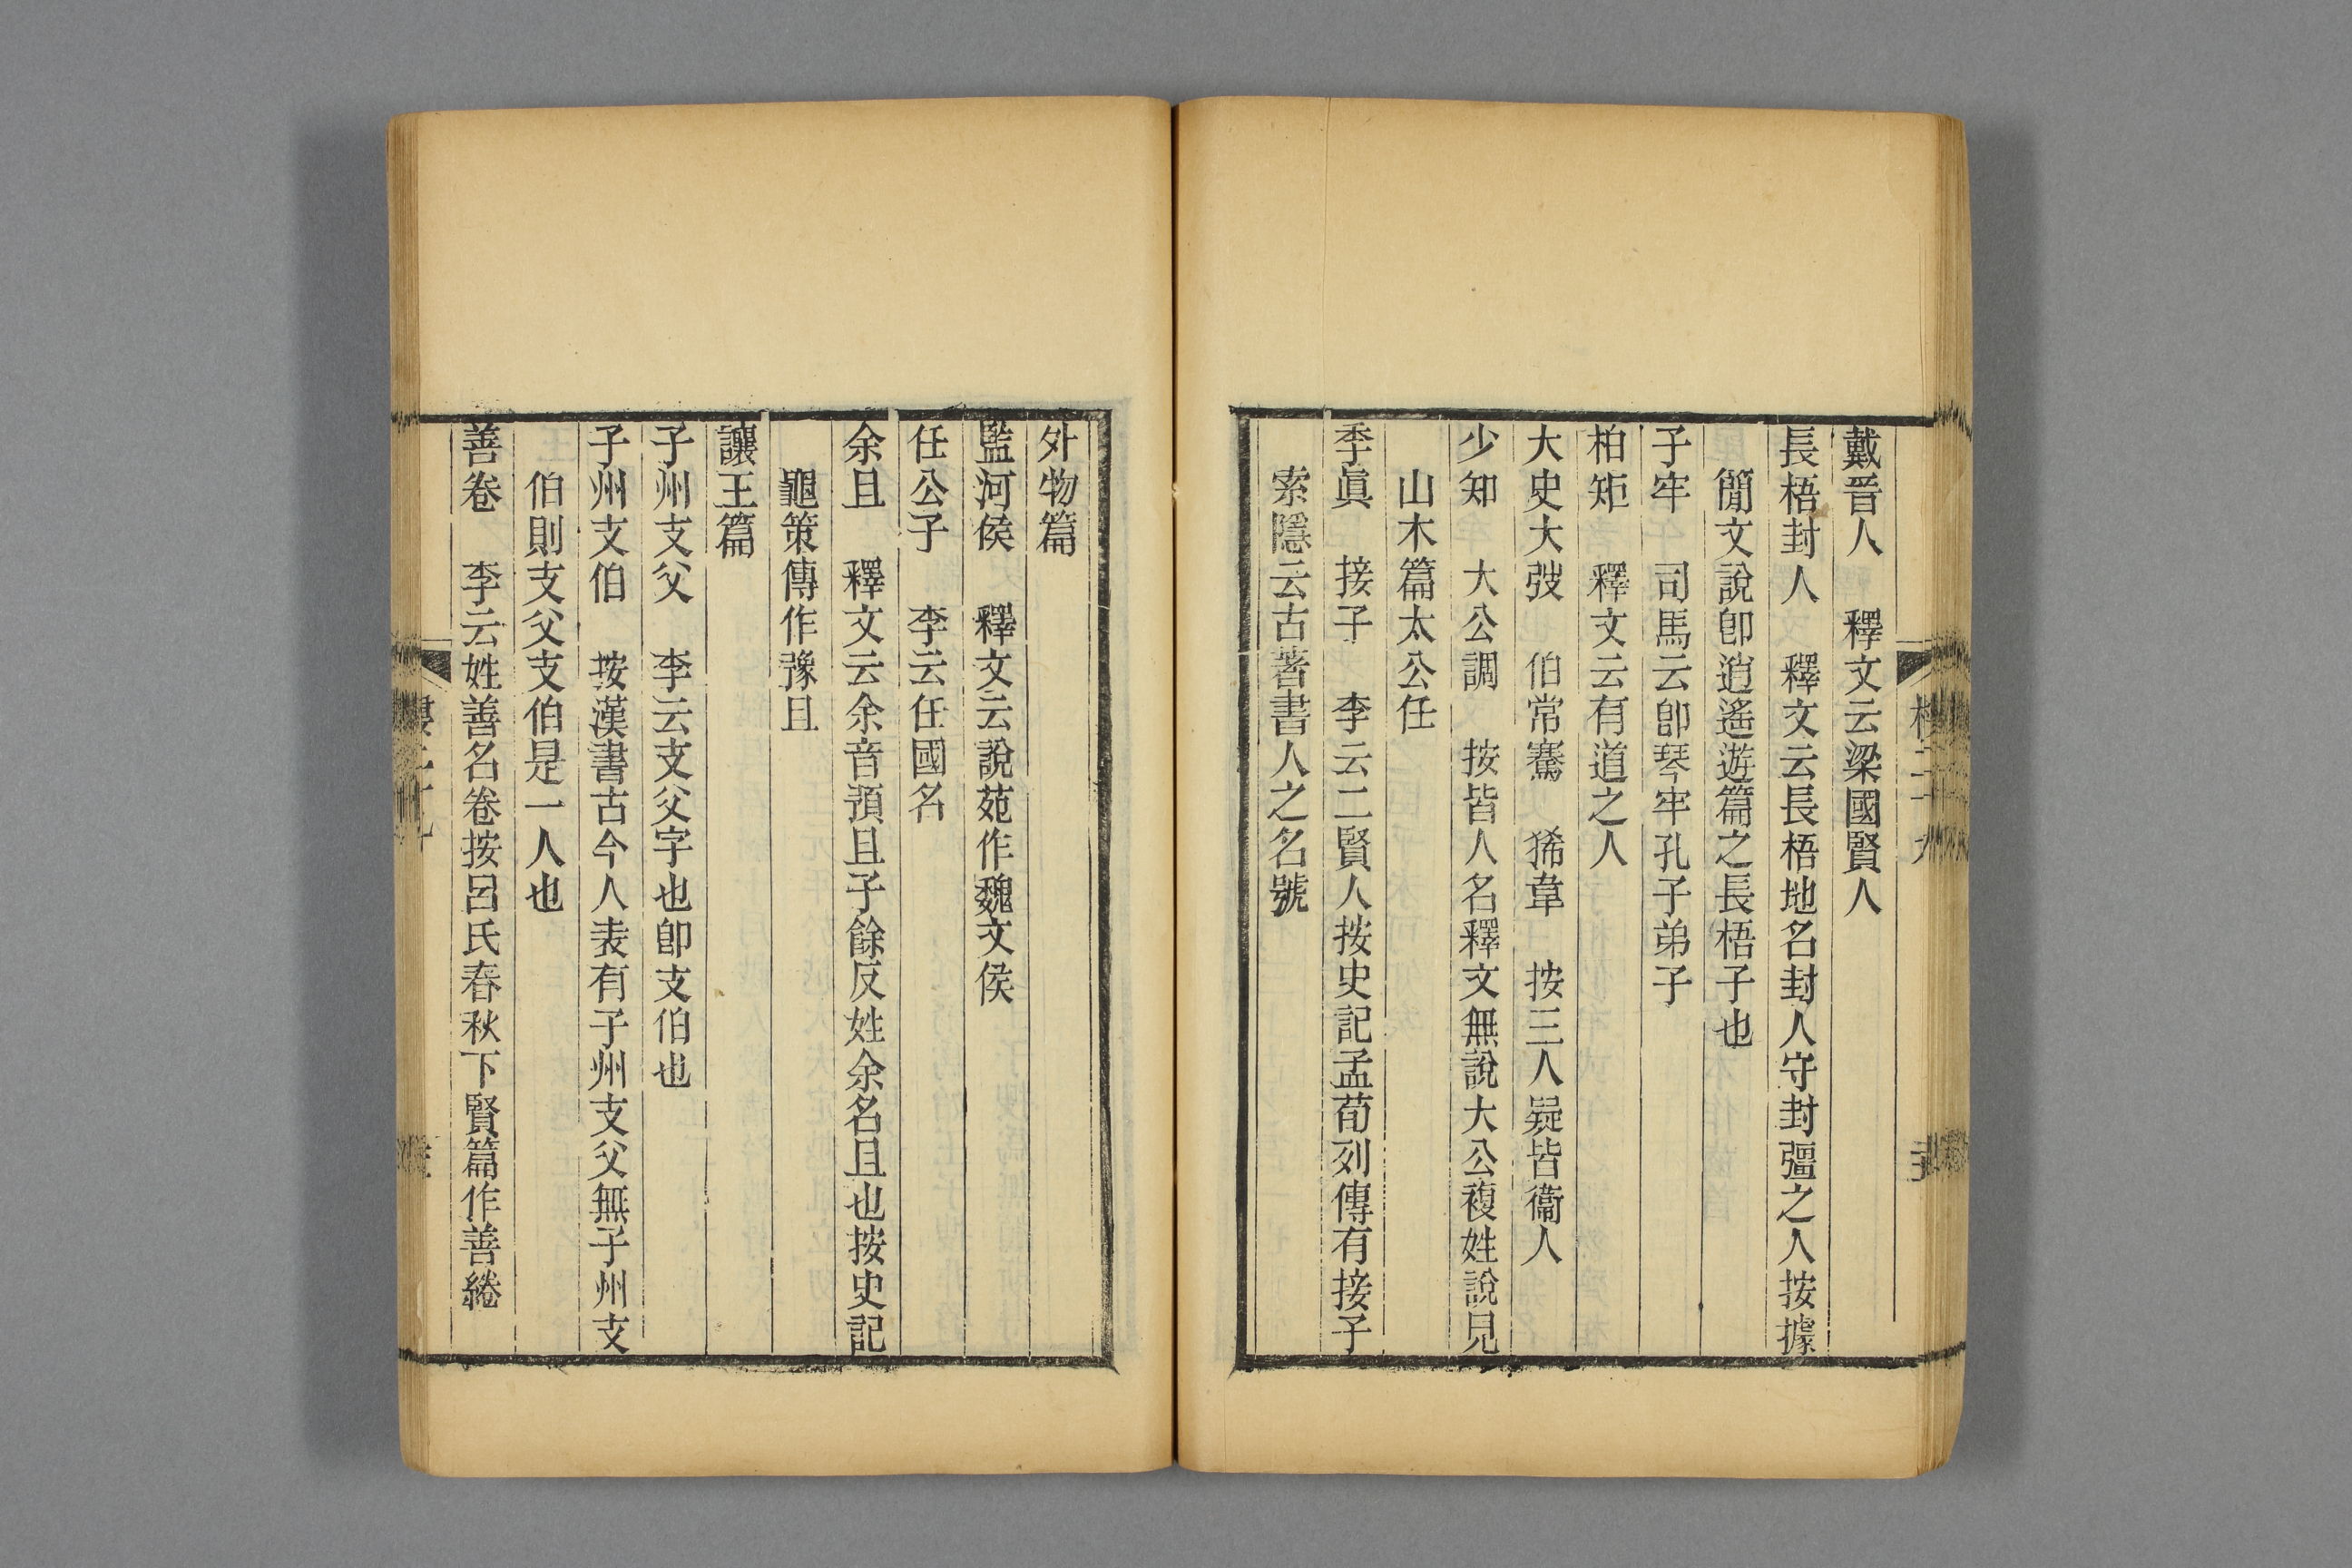 戴晉人　釋文云梁國賢人
長梧封人　釋文云長梧地名封人守封疆之人按據
簡文說卽逍遙遊篇之長梧子也
子牢　司馬云卽琴牢孔子弟子
柏矩　釋文云有道之人
大史大弢　伯常騫　狶韋　按三人疑皆衞人
少知　大公調　按皆人名釋文無說大公複姓說見
山木篇太公任
季眞　接子　李云二賢人按史記孟荀列傳有接子
索隱云古著書人之名號
外物篇
監河侯　釋文云說苑作魏文侯
任公子　李云任國名
余且　釋文云余音預且子餘反姓余名且也按史記
龜策傳作豫且
讓王篇
子州支父　李云支父字也卽支伯也
子州支伯　按漢書古今人表有子州支父無子州支
伯則支父支伯是一人也
善卷　李云姓善名卷按呂氏春秋下賢篇作善綣